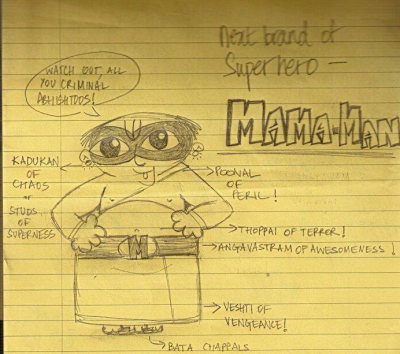 Next brand of
Superhero —
MAMA-MAN
WATCH OUT, ALL
YOU CRIMINAL
ABHISHTOOS!
KADUKAN
OF
CHAOS
or
STUDS
OF
SUPERNESS
POONAL
OF
PERIL!
THOPPAI OF TERROR!
ANGAVASTRAM OF AWESOMENESS!
M
VESHTI OF
VENGEANCE!
BATA CHAPPALS